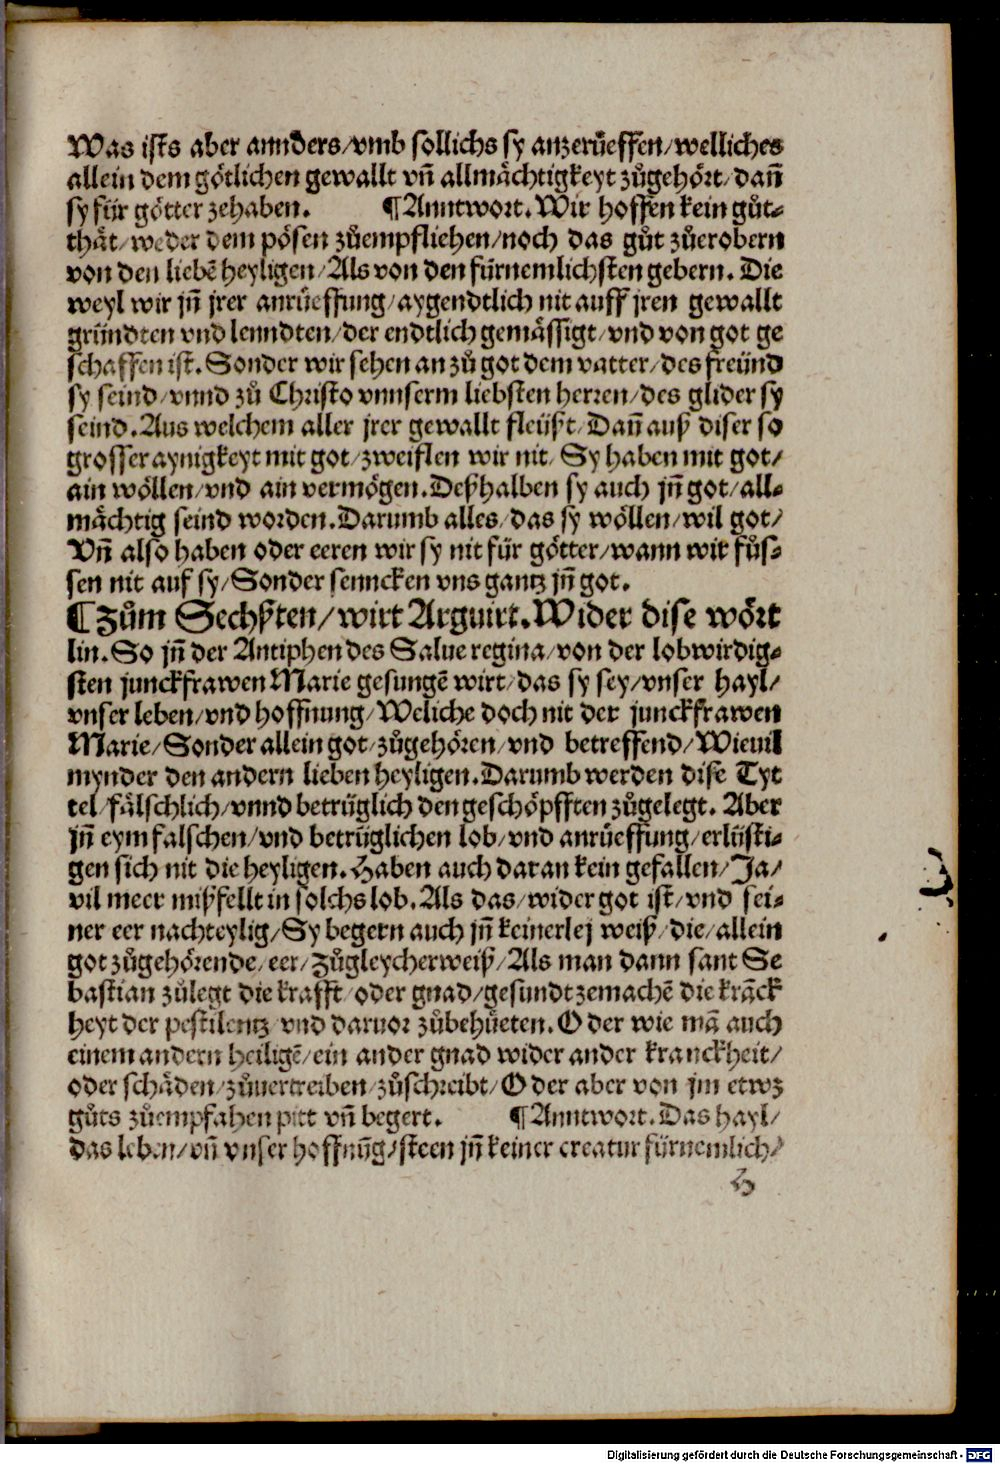 Was ists aber annders/vmb sollichs sy anzerůeffen/welliches
allein dem götlichen gewallt vñ allmächtigkeyt zůgehört/dañ
sy für götter zehaben. ¶Anntwort. Wir hoffen kein gůt⸗
thät/weder dem pösen zůempfliehen/noch das gůt zůerobern
von den liebẽ heyligen/Als von den fürnemlichsten gebern. Die
weyl wir jñ jrer anrůeffung/aygendtlich nit auff jren gewallt
gründten vnd lenndten/der endtlich gemässigt/vnd von got ge
schaffen ist. Sonder wir sehen an zů got dem vatter/des freünd
sy seind/vnnd zů Christo vnnserm liebsten herren/des glider sy
seind. Aus welchem aller jrer gewallt fleüßt/Dañ auß diser so
grosser aynigkeyt mit got/zweiflen wir nit/Sy haben mit got/
ain wöllen/vnd ain vermögen. Deßhalben sy auch jñ got/all⸗
mächtig seind worden. Darumb alles/das sy wöllen/wil got/
Vñ also haben oder eeren wir sy nit für götter/wann wir fůs⸗
sen nit auf sy/Sonder senncken vns gantz jñ got.
¶Zům Sechßten/wirt Arguirt. Wider dise wört
lin. So jñ der Antiphen des Salue regina/von der lobwirdig⸗
sten junckfrawen Marie gesungẽ wirt/das sy sey/vnser hayl/
vnser leben/vnd hoffnung/Weliche doch nit der junckfrawen
Marie/Sonder allein got/zůgehören/vnd betreffend/Wieuil
mynder den andern lieben heyligen. Darumb werden dise Tyt
tel/fälschlich/vnnd betrüglich den geschöpfften zůgelegt. Aber
jñ eym falschen/vnd betrüglichen lob/vnd anrůeffung/erlüsti⸗
gen sich nit die heyligen. Haben auch daran kein gefallen/Ja/
vil meer mißfellt in solchs lob. Als das/wider got ist/vnd sei⸗
ner eer nachteylig/Sy begern auch jñ keinerlej weiß/die/allein
got zůgehörende/eer/Zůgleycherweiß/Als man dann sant Se
bastian zůlegt die krafft/oder gnad/gesundt zemachẽ die krãck
heyt der pestilentz vnd daruor zůbehůeten. Oder wie mã auch
einem andern heiligẽ/ein ander gnad wider ander kranckheit/
oder schäden/zůuertreiben/zůschreibt/Oder aber von jm etwz
gůts zůempfahen pitt vñ begert. ¶Anntwort. Das hayl/
das leben/vñ vnser hoffnũg/steen jñ keiner creatur fürnemlich/
H
Digitalisierung gefördert durch die Deutsche Forschungsgemeinschaft - DFG